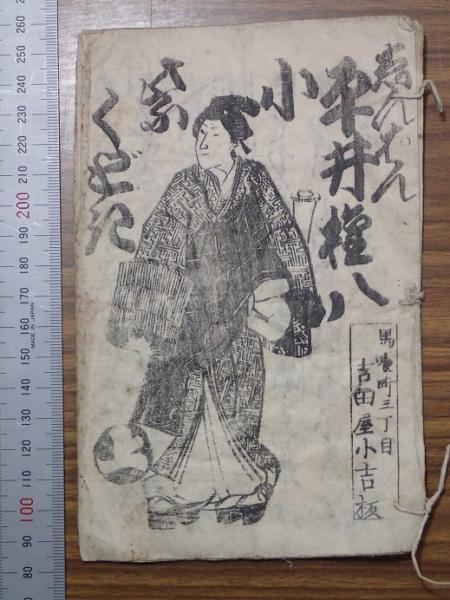 しんぱん
平井權八
小
紫
くどき
馬喰町三丁目
吉田屋小吉板
260
250
240
230
220
210
200
190
180
170
160
150
140
130
120
110
100
90
80
MADE IN JAPAN